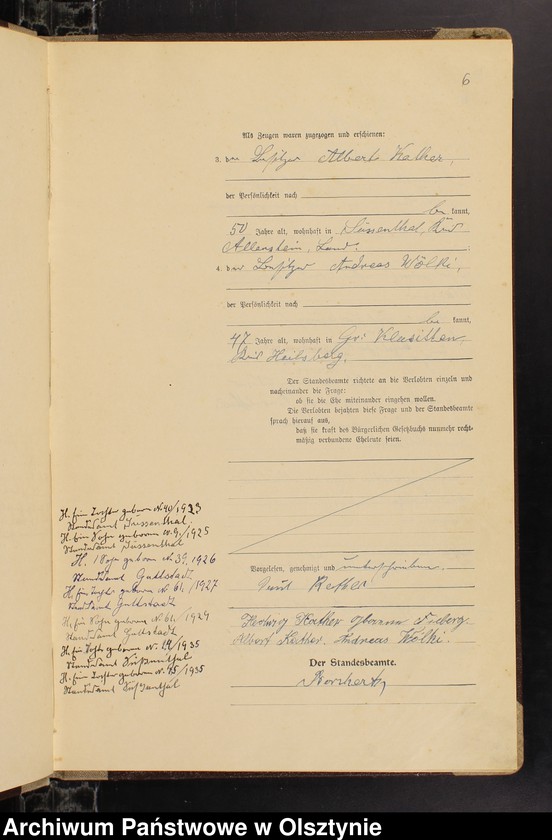 6
Als Zeugen waren zugezogen und erschienen:
3. der Besitzer Albert Kather,
der Persönlichkeit nach
be kannt,
50 Jahre alt, wohnhaft in Süssenthal, Kreis
Allenstein, Land.
4. der Besitzer Andreas Wölki,
der Persönlichkeit nach
be kannt,
47 Jahre alt, wohnhaft in Gr: Klausitten
Kreis Heilsberg.
Der Standesbeamte richtete an die Verlobten einzeln und
nacheinander die Frage:
ob sie die Ehe miteinander eingehen wollen.
Die Verlobten bejahten diese Frage und der Standesbeamte
sprach hierauf aus,
daß sie kraft des Bürgerlichen Gesetzbuchs nunmehr recht-
mäßig verbundene Eheleute seien.
Vorgelesen, genehmigt und unterschrieben.
Kather
Hedwig Kather geborne
Albert Kather. Andreas Wölki.
Der Standesbeamte.
H. Ein Tochter geboren N. 40/1923
Standesamt Süssenthal.
H. Ein Sohn geboren N. 9/1925
Standesamt Süssenthal
H. 1 Sohn geboren N. 39, 1926
Standesamt Guttstadt
H. Ein Tochter geboren N. 61/1927
Standesamt Guttstadt
H. Ein Sohn geboren N. 61/1929
Standesamt Guttstadt
H. Ein Tochter geboren N. /1935
Standesamt Süßenthal
H. Ein Tochter geboren N. 45/1935
Standesamt Süßenthal
Archiwum Państwowe w Olsztynie